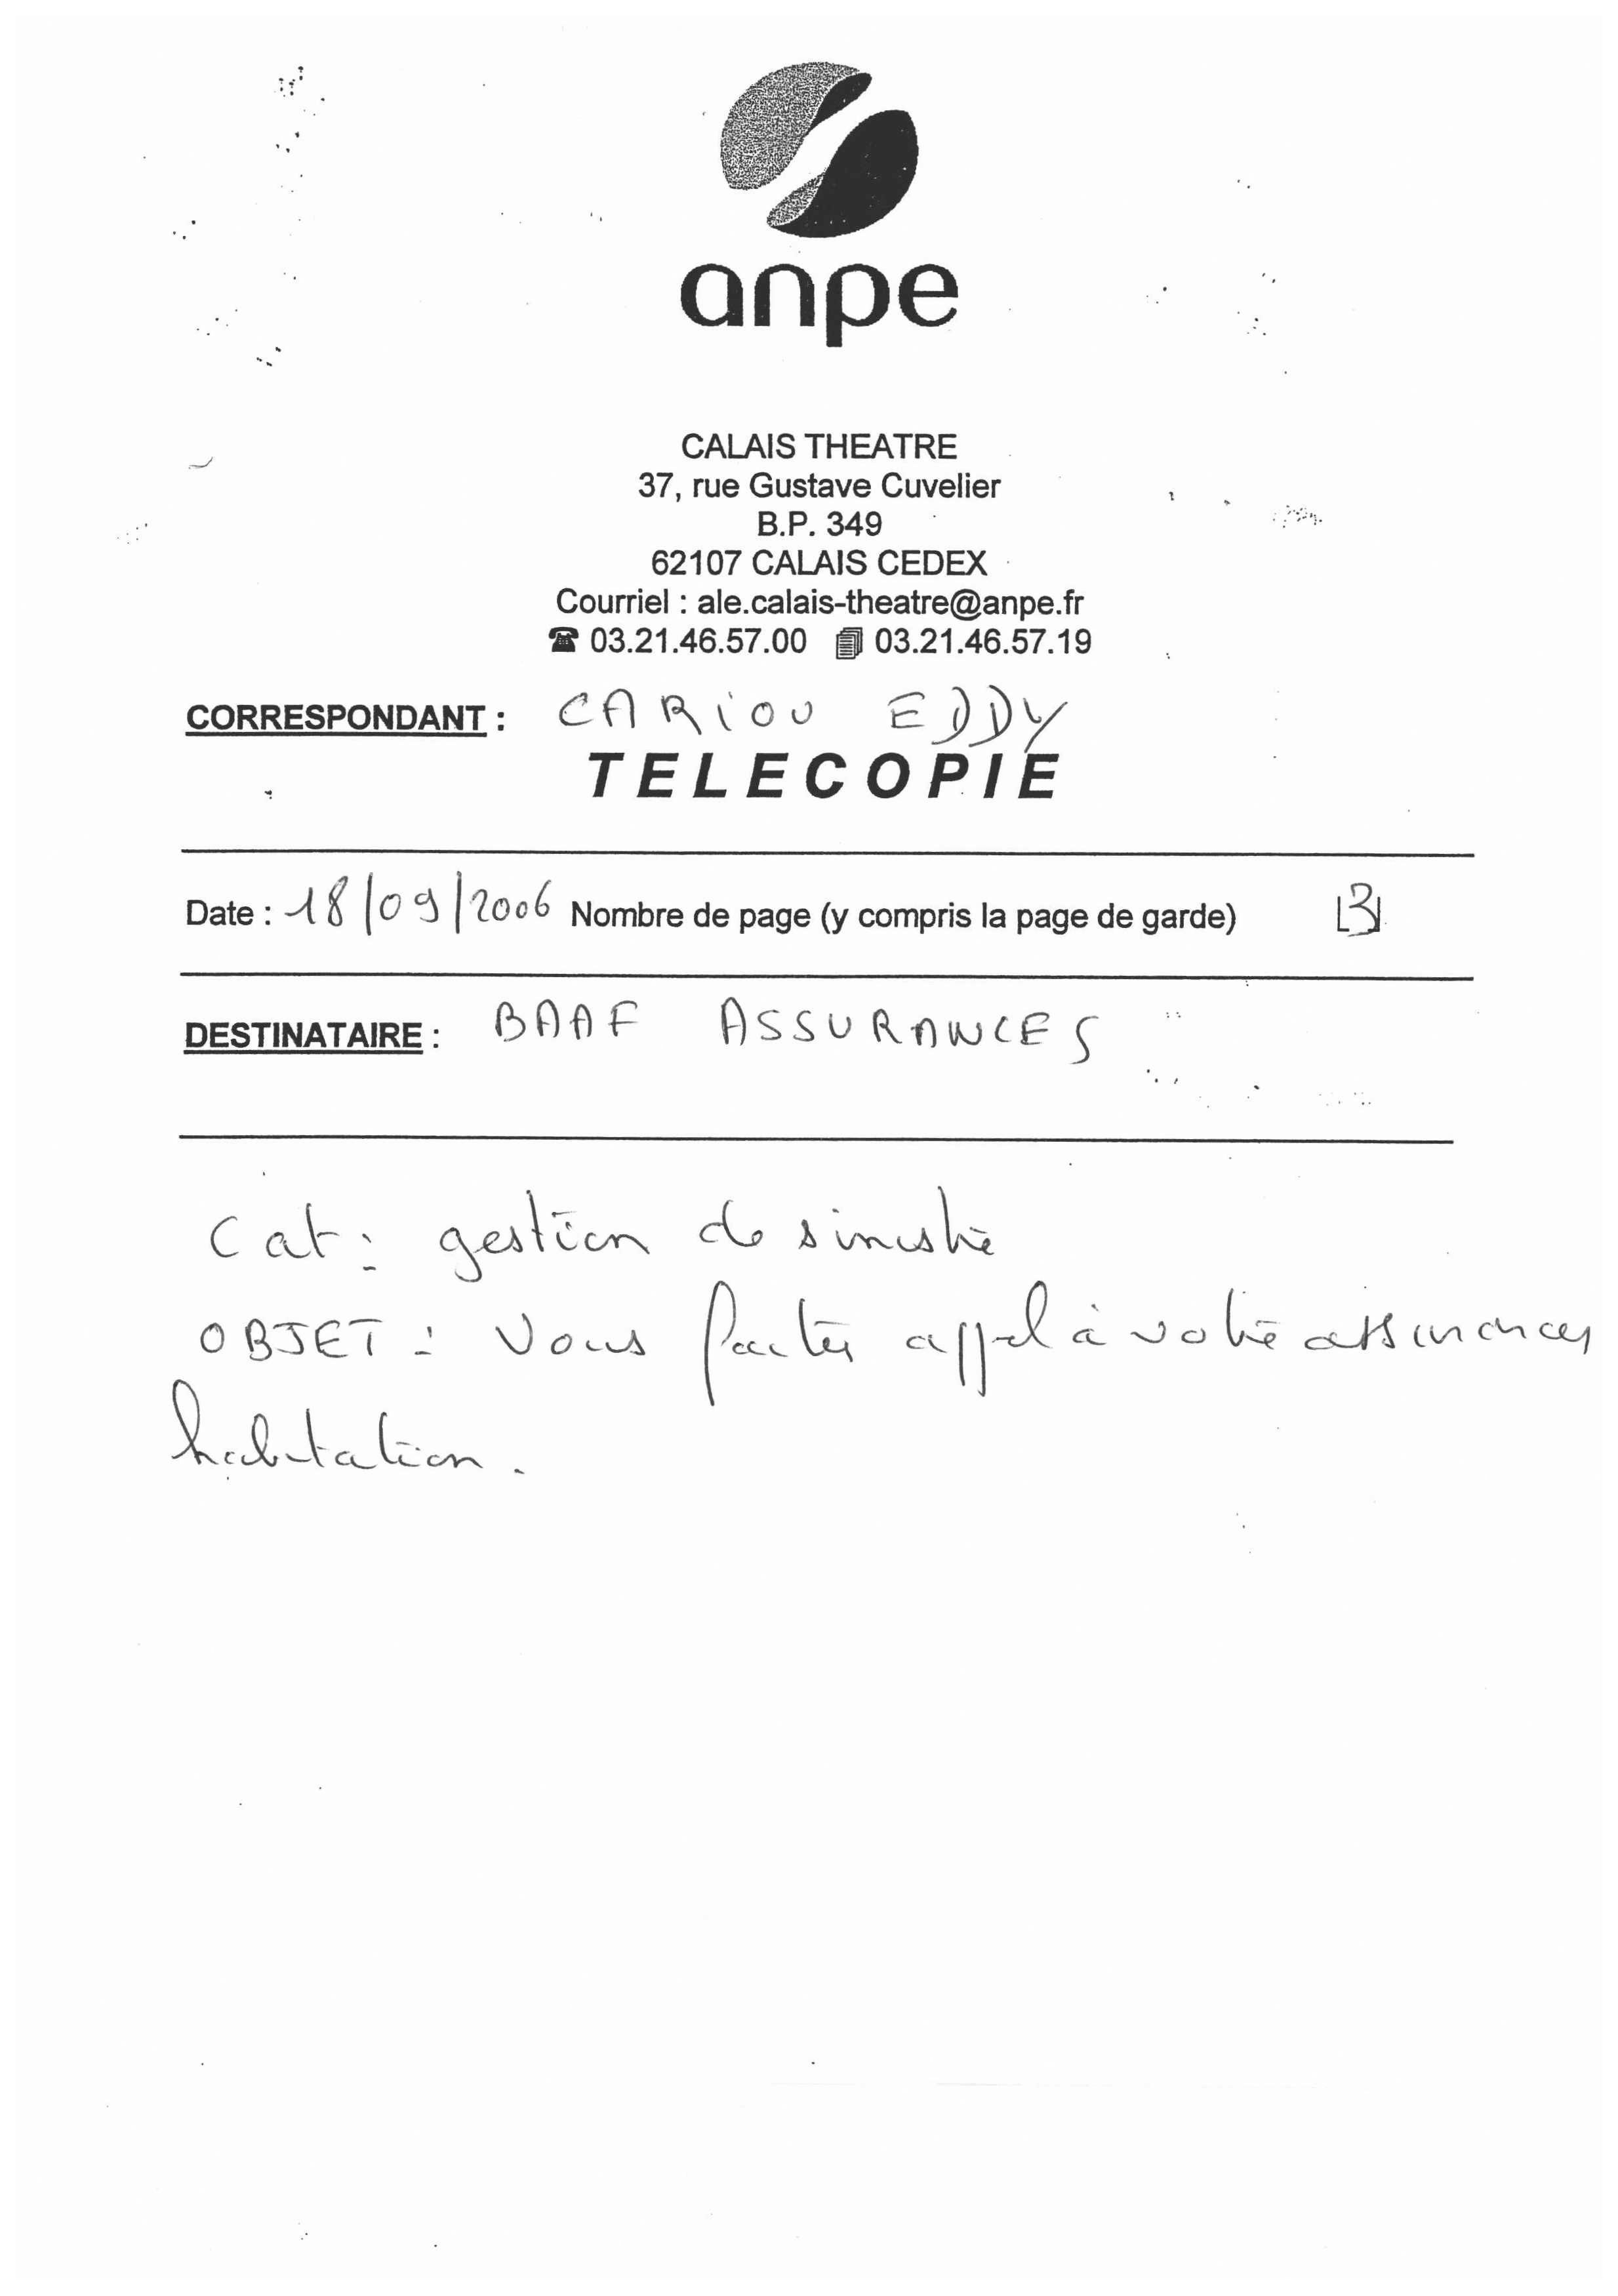 anpe
CALAIS THEATRE
37, rue Gustave Cuvelier
B.P. 349
62107 CALAIS CEDEX
Courriel : ale.calais-theatre@anpe.fr
☎ 03.21.46.57.00 03.21.46.57.19
CORRESPONDANT : CARIOU EDDY
TELECOPIE
Date : 18/09/2006 Nombre de page (y compris la page de garde) 3
DESTINATAIRE : BAAF ASSURANCES
Cat : gestion de sinistre
OBJET : Vous faites appel à votre assurances
habitation.